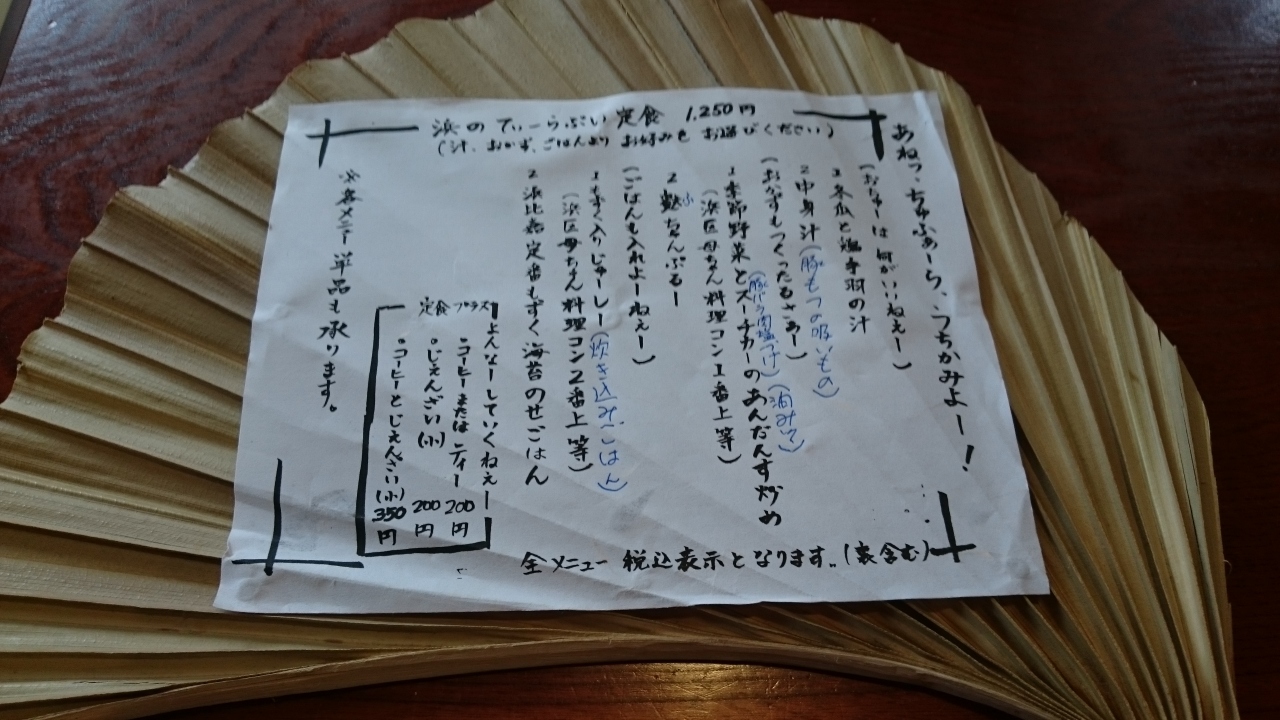 浜のてぃーらぶい定食 1,250円
(汁、おかず、ごはんより お好みを お選びください)
あねっ、ちゅふぁーら、うちかみよー!
(おちゅーは 何がいいねぇー)
1 冬瓜と鶏手羽の汁
2 中身汁(豚もつの吸いもの)
(おかずもつくったるさぁー)
1 季節野菜とスーチカーのあんだんすー炒め
(豚バラ肉塩づけ)(油みそ)
(浜区母ちゃん料理コン1番上等)
2 麩ちゃんぷるー
ふ
(ごはんも入れよーねぇー)
1 もずく入りじゅーしー(炊き込みごはん)
(浜区母ちゃん料理コン2番上等)
2 浜比嘉定番もずく海苔のせごはん
定食プラス
よんなーしていくねぇー
・コーヒーまたはティー 200円
・じぇんざい(小) 200円
・コーヒーとじぇんざい(小) 350円
※各メニュー単品も承ります。
全メニュー 税込表示となります。(裏含む)